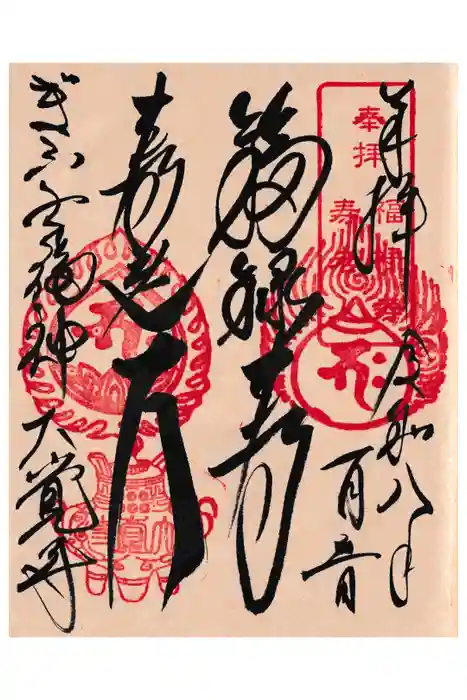 奉拝
令和八年
一月
福禄寿
寿老人
ぎふ七福神
大覚寺
奉拝
福禄寿
寿老